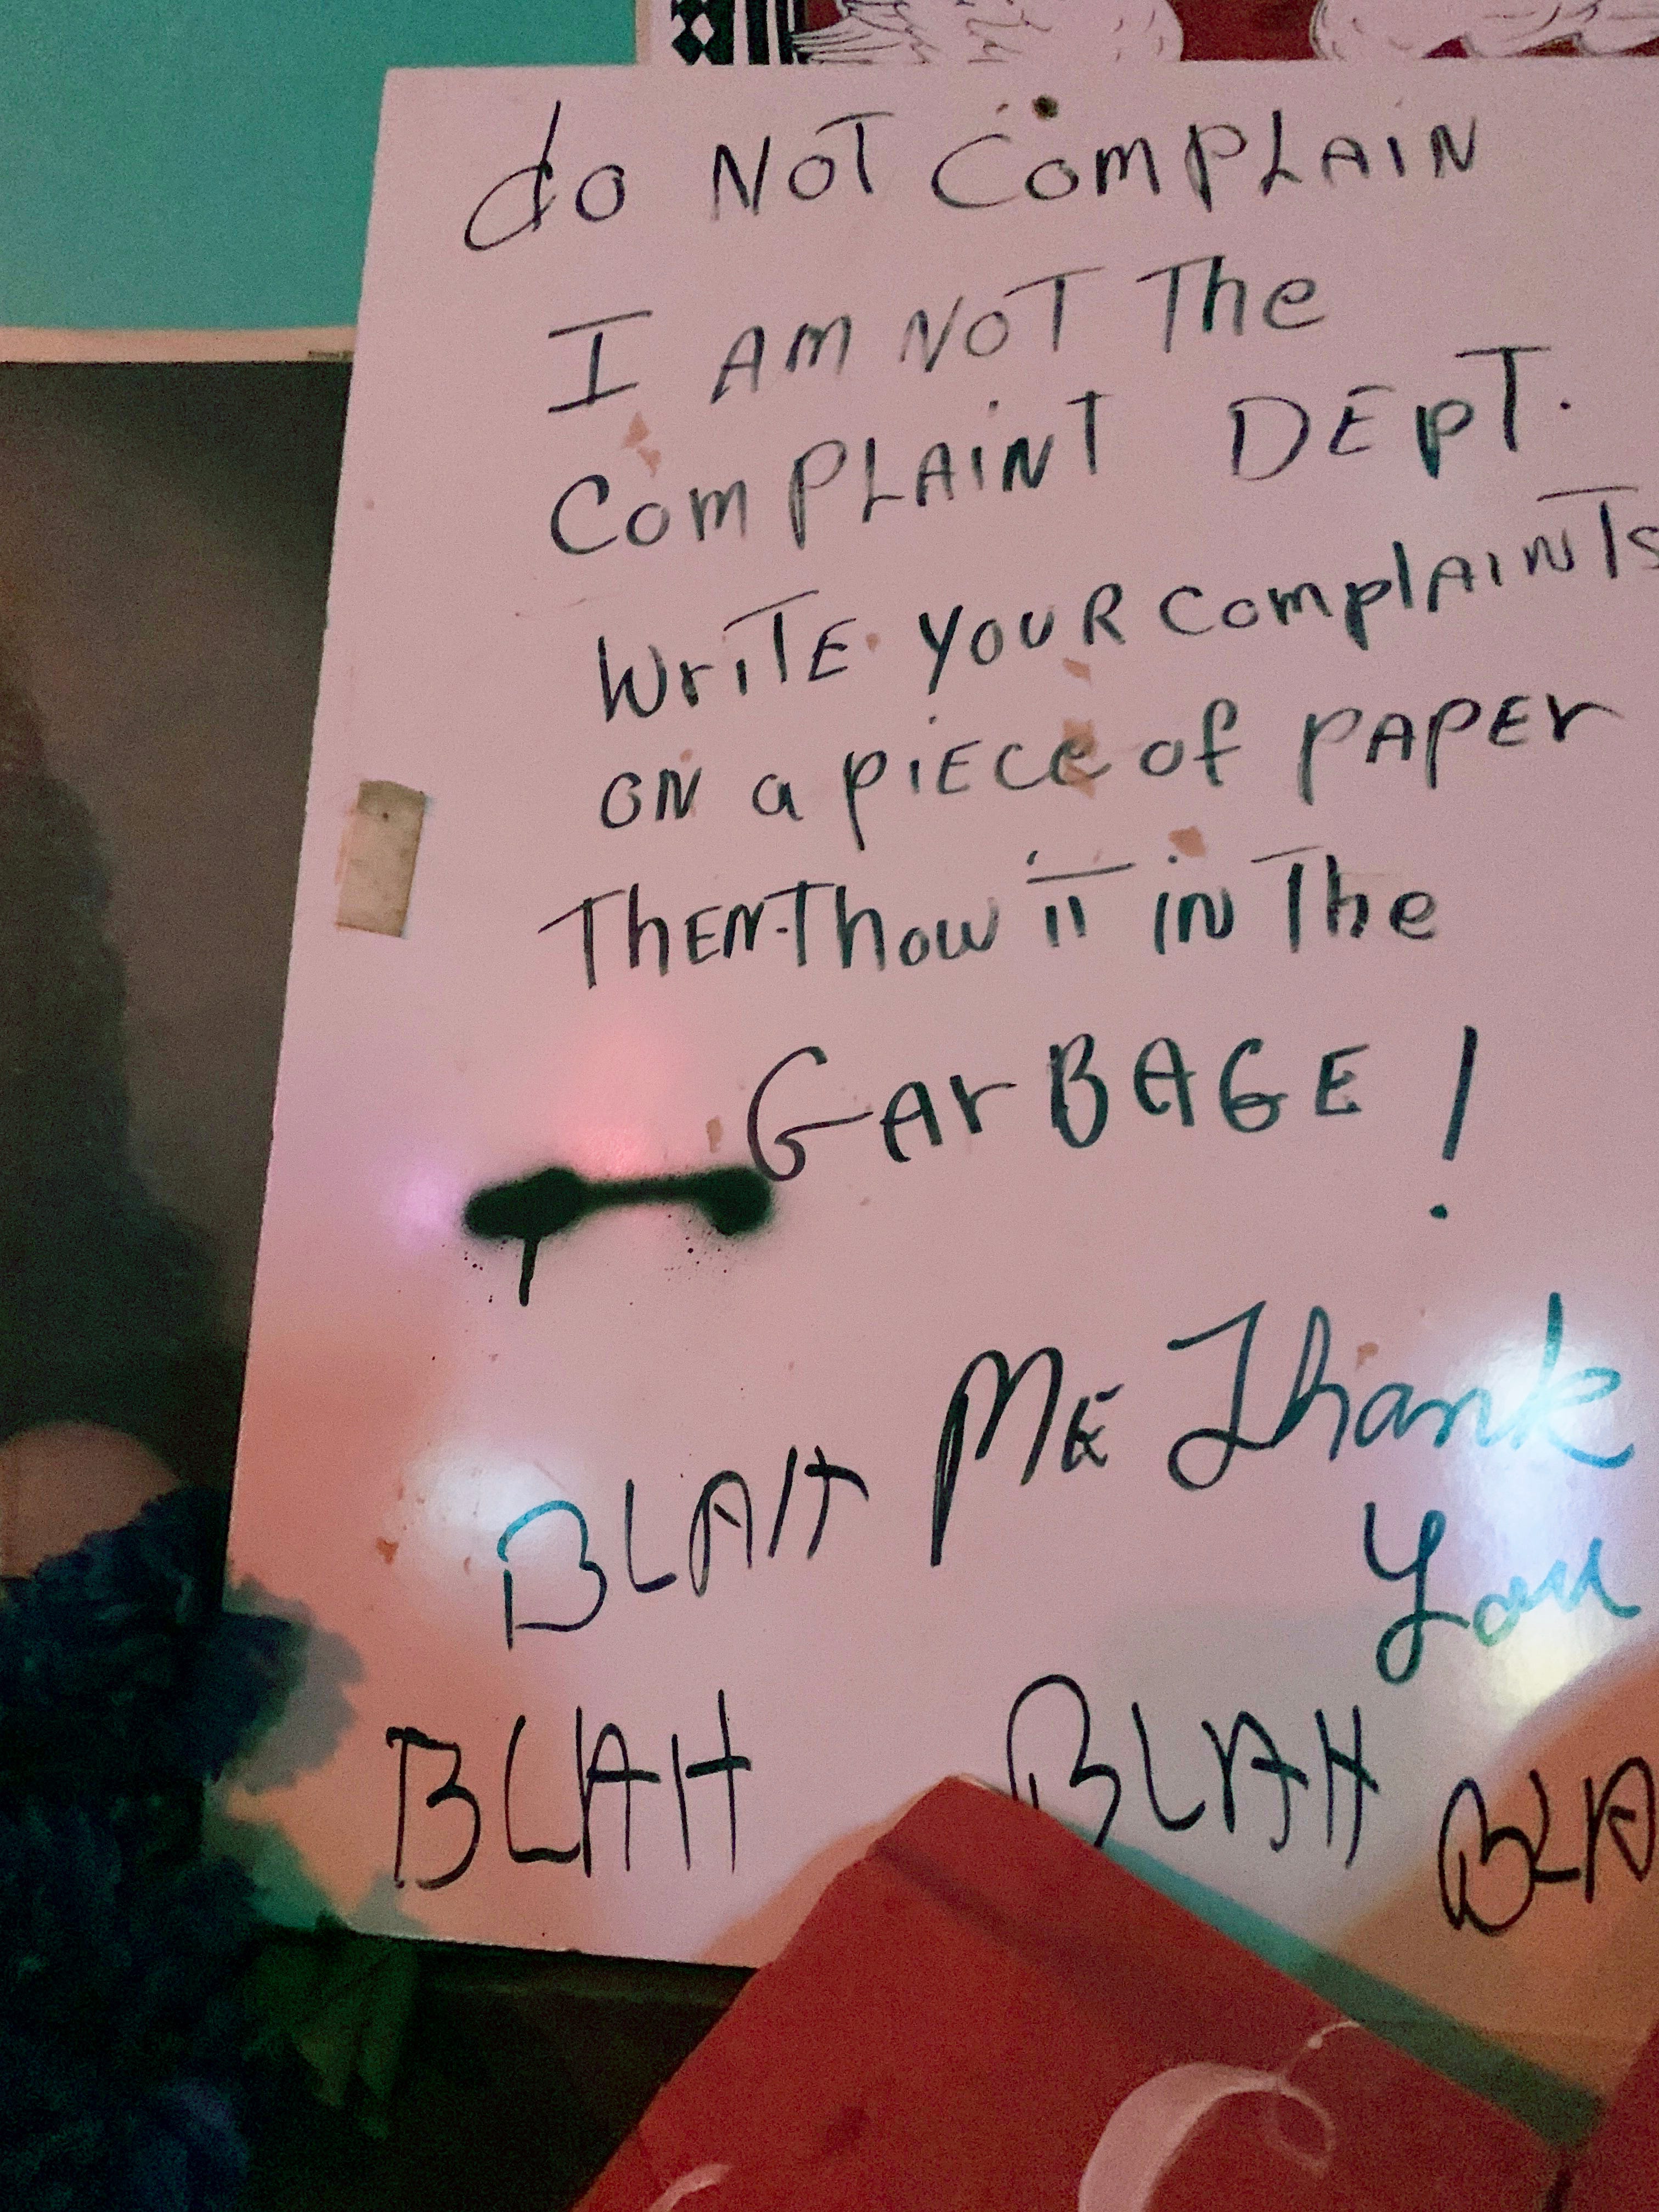 do NOT COMPLAIN
I AM NOT The
COMPLAINT DEPT.
WriTE YOUR ComplAINTs
ON a piECe of PAPEr
ThEN Thow iT iN The
GArBAGE!
ME Thank
BLAH
You
BLAH BLAH BLA